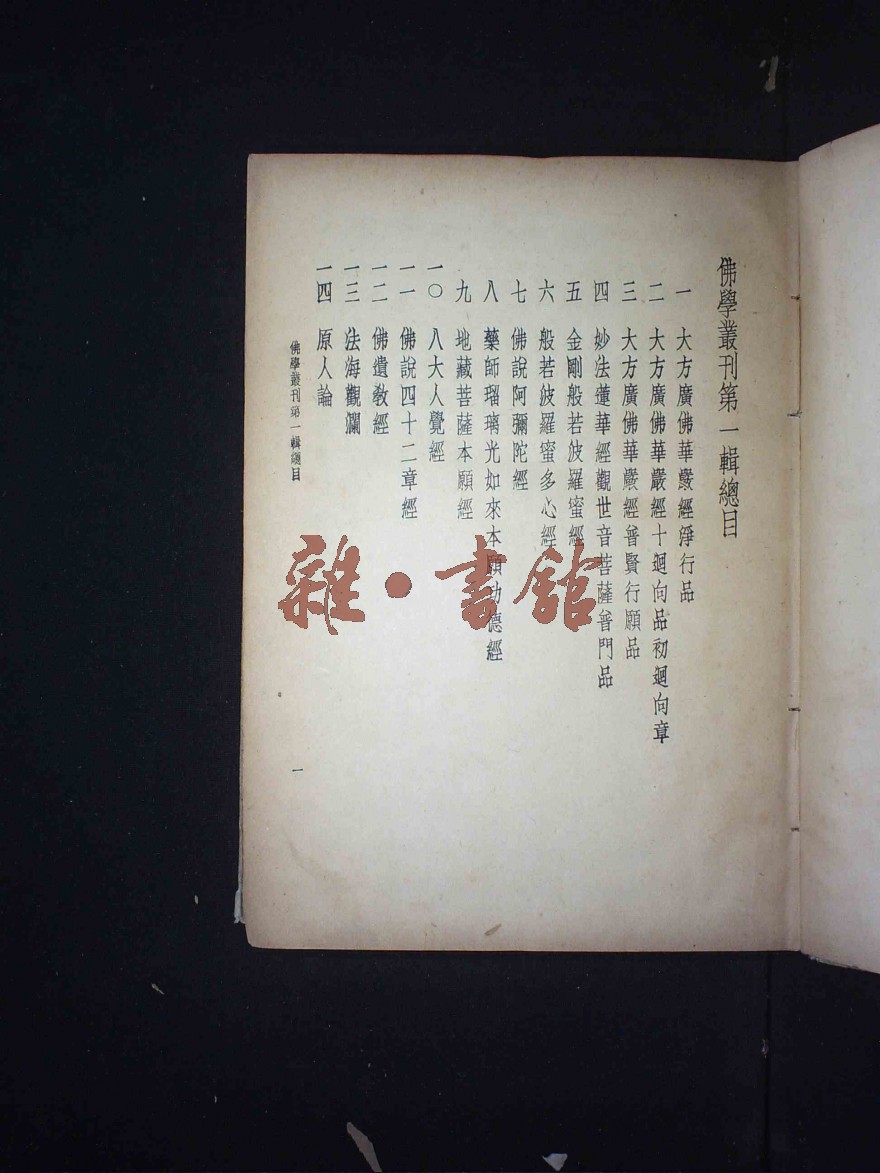 佛學叢刊第一輯總目
一 大方廣佛華嚴經淨行品
二 大方廣佛華嚴經十迴向品初迴向章
三 大方廣佛華嚴經普賢行願品
四 妙法蓮華經觀世音菩薩普門品
五 金剛般若波羅蜜經
六 般若波羅蜜多心經
七 佛說阿彌陀經
八 藥師瑠璃光如來本願功德經
九 地藏菩薩本願經
一〇 八大人覺經
一一 佛說四十二章經
一二 佛遺教經
一三 法海觀瀾
一四 原人論
佛學叢刊第一輯總目
一
雜·書館